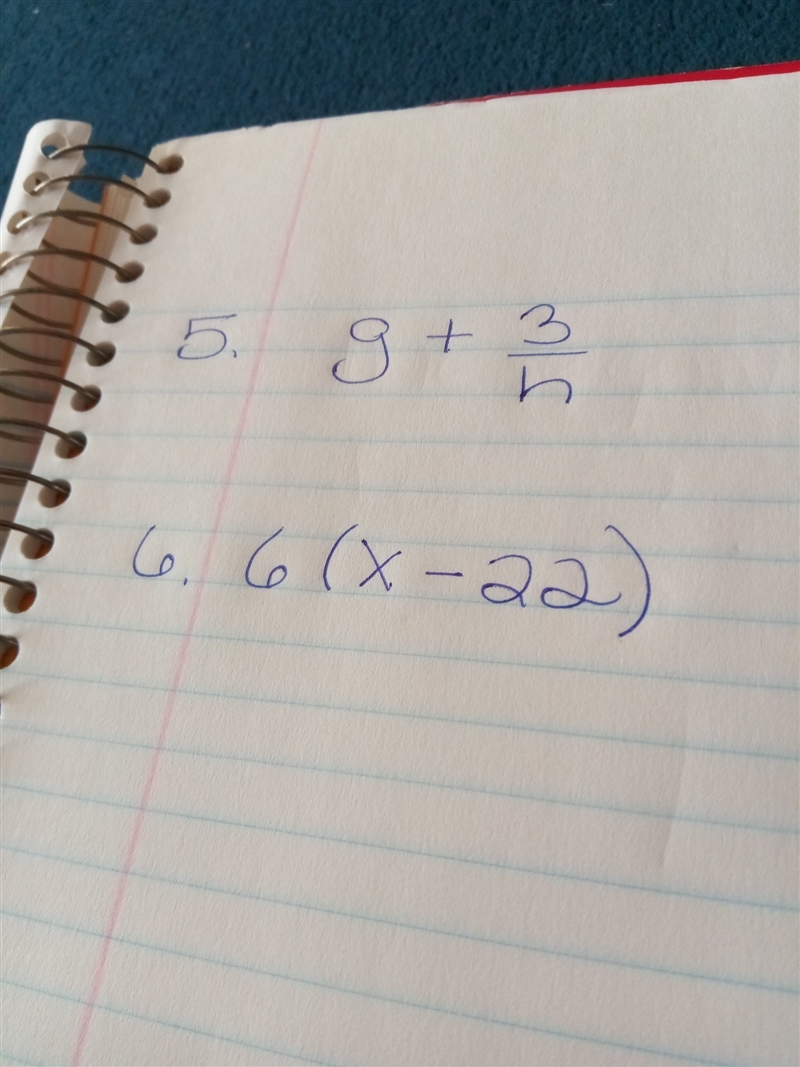 5. g + 3/h
6. 6 (x - 22)